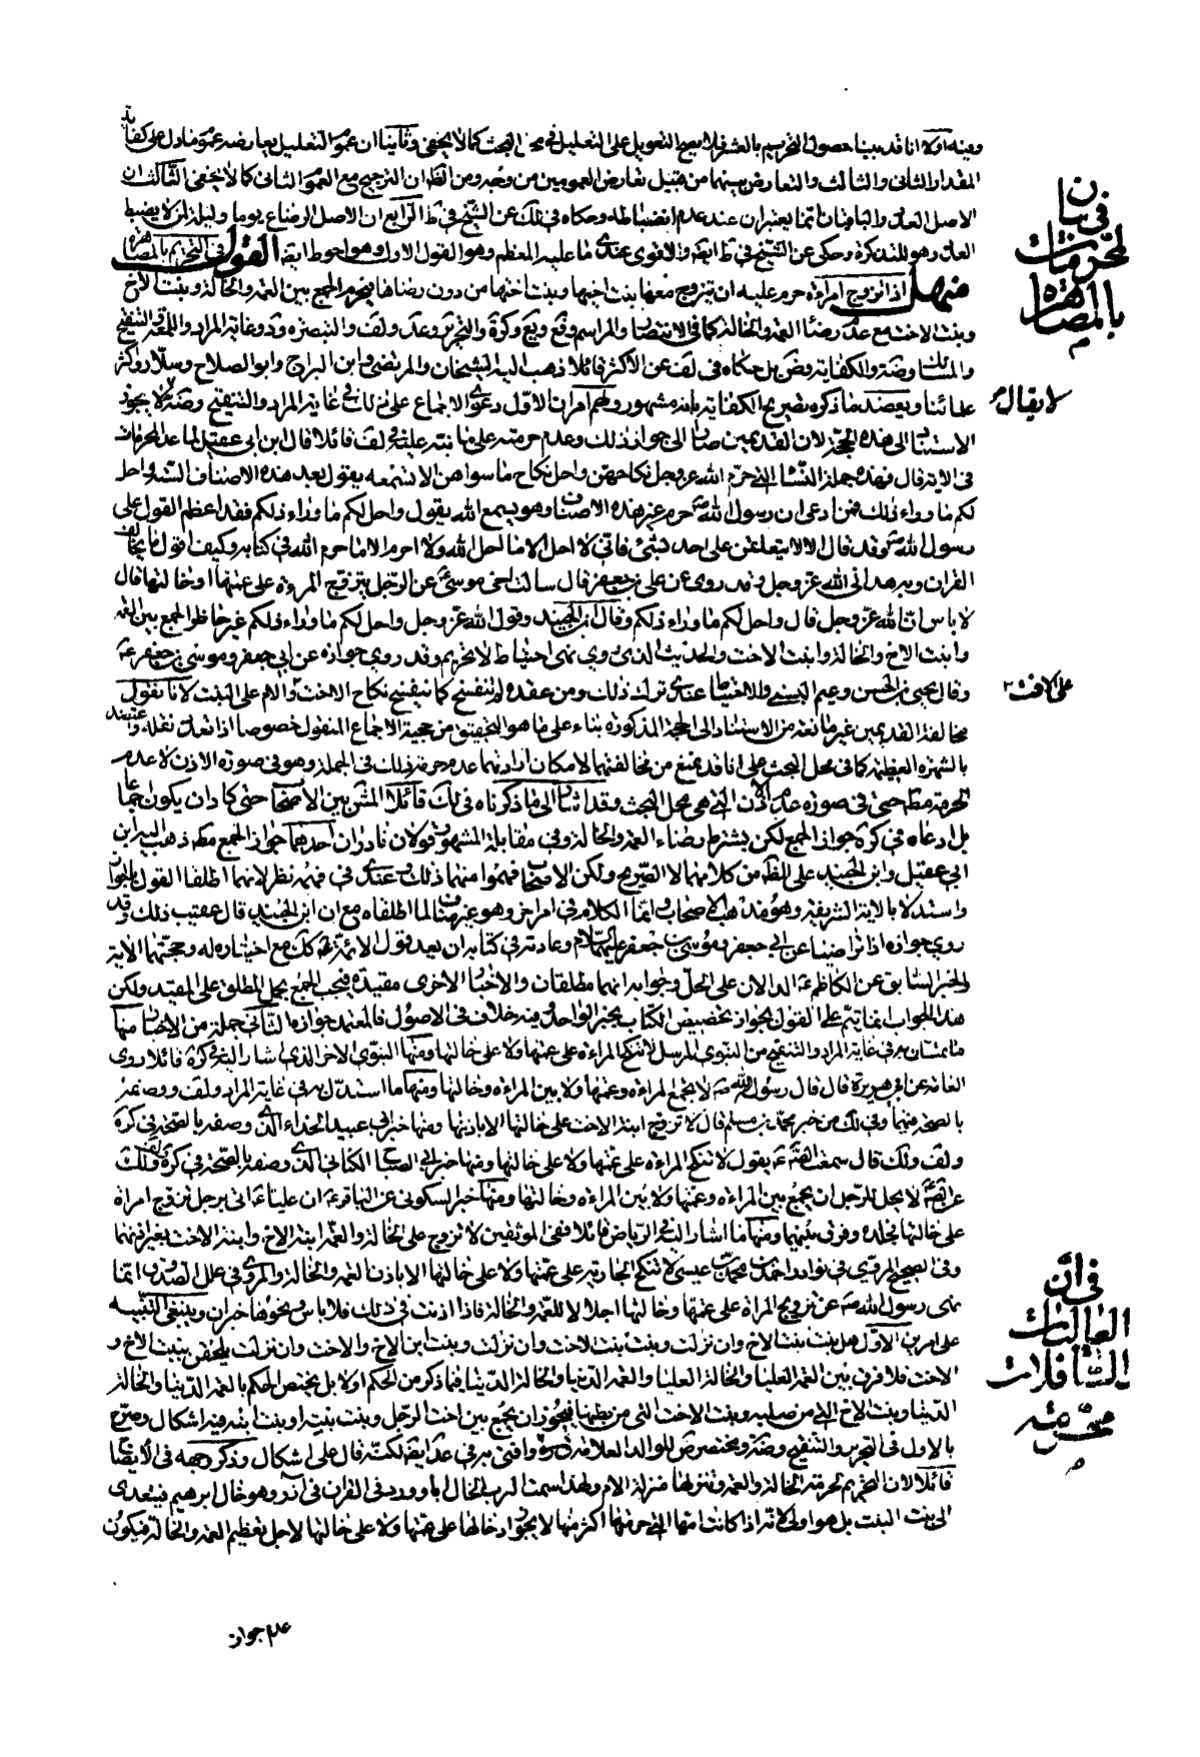 وفيه اولا انا قد بينا حصول التحريم بالعشر فلا يصح التعويل على التعليل في محل البحث كما لا يخفى وثانيا ان عموم التعليل يعارضه عموم ما دل على كفاية
المقدار الثانى والثالث والتعارض بينهما من قبيل تعارض العمومين من وجه ومن الظ ان الترجيح مع العموم الثانى كما لا يخفى الثالث ان
الاصل العدد والباقيان انما يعتبران عند عدم انضباطه وحكاه فى لك عن الشيخ فى ط الرابع ان الاصل الرضاع يوما وليلة لمن لا يضبط
العدد وهو للتذكرة وحكى عن الشيخ في ط ايضا والاقوى عندى ما عليه المعظم وهو القول الاول وهو احوط ايضا القول في التحريم بالمصاهرة
منهل اذا تزوج امراة حرم عليه ان يتزوج معها بنت اخيها وبنت اختها من دون رضاها فيحرم الجمع بين العمة والخالة وبنت الاخ
وبنت الاخت مع عدم رضاء العمة والخالة كما في الانتصار والمراسم وفع ويع وكرة والتحرير وعد ولف والتبصرة ود وغاية المراد واللمعة والتنقيح
والمسالك وضة والكفاية وض بل حكاه فى لف عن الاكثر قائلا ذهب اليه الشيخان والمرتضى وابن البراج وابو الصلاح وسلار واكثر
علمائنا ويعضد ما ذكره تصريح الكفاية بانه مشهور ولهم امران الاول دعوى الاجماع على ذلك في غاية المراد والتنقيح وضة لا يجوز
الاستناد الى هذه الحجة لان القديمين صارا الى جواز ذلك وعدم حرمته على ما نبه عليه في لف قائلا قال ابن ابى عقيل لما عد المحرمات
فى الاية قال فهذه جملة النساء التى حرم الله عز وجل نكاحهن واحل نكاح ما سواهن الا تسمعه يقول بعد هذه الاصناف الستة واحل
لكم ما وراء ذلك فمن ادعى ان رسول الله ص حرم غير هذه الاصناف وهو يسمع الله يقول واحل لكم ما وراء ذلكم فقد اعظم القول على
رسول الله ص وقد قال الا لا يتعلقن على احد بشئ فانى لا احل الا ما احل الله ولا احرم الا ما حرم الله فى كتابه وكيف اقول ما يخالف
القران وبه هدانى الله عز وجل وقد روى عن على بن جعفر قال سالت اخى موسى ع عن الرجل يتزوج المرءة على عمتها او خالتها قال
لا باس ان الله عز وجل قال واحل لكم ما وراء ذلكم وقال ابن الجنيد وقول الله عز وجل واحل لكم ما وراء ذلكم غير حاظر الجمع بين العمة
وابنت الاخ والخالة وابنت الاخت والحديث الذى روى نهى احتياط لا تحريم وقد روى جوازه عن ابى جعفر وموسى بن جعفر ع
وقال يحيى بن الحسن وعيم اليه والاحتياط عندى ترك ذلك ومن عقده لم ينفسخ كما ينفسخ نكاح الاخت والام على البنت لانا نقول
مخالفة القديمين غير مانعة من الاستناد الى الحجة المذكورة بناء على ما هو التحقيق من حجية الاجماع المنقول خصوصا اذا تعدد نقله واعتضد
بالشهرة العظيمة كما فى محل البحث على انا قد نمنع من مخالفتهما لامكان ارادتهما عدم حرمة ذلك فى الجملة وهو فى صورة الاذن لا عدم
الحرمة مط حتى فى صورة عدم الاذن التى هى محل البحث وقد اشار الى ما ذكرناه فى لك قائلا المشهور بين الاصحاب حتى كاد ان يكون اجماعا
بل ادعاه فى كرة جواز الجمع لكن بشرط رضاء العمة والخالة وفى مقابلة المشهور قولان نادران احدهما جواز الجمع مط ذهب اليه ابن
ابى عقيل وابن الجنيد على الظ من كلامهما لا الصريح ولكن الاصحاب فهموا منهما ذلك وعندى فى فهمه نظر لانهما اطلقا القول بالجواز
واستدلا بالاية الشريفة وهو مذهب الاصحاب وانما الكلام فى امر اخر وهو غير مناف لما اطلقاه مع ان ابن الجنيد قال عقيب ذلك وقد
روى جوازه اذا تراضيا عن ابى جعفر وموسى بن جعفر عليهما السلام وعادته فى كتابه ان يعد قول الائمة ع كذلك مع اختياره له وحجتهما الاية
والخبر السابق عن الكاظم ع الدالان على الحل وجوابه انهما مطلقان والاخبار الاخرى مقيدة فيجب الجمع بحمل المطلق على المقيد ولكن
هذا الجواب انما يتم على القول بجواز تخصيص الكتاب بخبر الواحد وفيه خلاف فى الاصول فالمعتمد جوازه الثانى جملة من الاخبار منها
ما تمسك به فى غاية المراد والتنقيح من النبوى المرسل لا تنكح المراءة على عمتها ولا على خالتها ومنها النبوى الاخر الذى اشار اليه فى كرة قائلا روى
العامة عن ابى هريرة قال قال رسول الله ص لا يجمع المراءة وعمتها ولا بين المراءة وخالتها ومنها ما استدل به فى غاية المراد ولف ووصف
بالصحة فيهما وفى لك من خبر محمد بن مسلم قال لا تزوج ابنة الاخت على خالتها الا باذنها ومنها خبر ابى عبيدة الحذاء الذى وصف بالصحة فى كرة
ولف ولك قال سمعت الصادق ع يقول لا تنكح المراءة على عمتها ولا على خالتها ومنها خبر ابى الصباح الكنانى الذى وصف بالصحة فى كرة ولف ولك
عن الصادق ع لا يحل للرجل ان يجمع بين المراءة وعمتها ولا بين المراءة وخالتها ومنها خبر السكونى عن الباقر ع ان عليا ع اتى برجل تزوج امراة
على خالتها فجلده وفرق بينهما ومنها ما اشار اليه فى الرياض قائلا ففى الموثقين لا تزوج على الخالة والعمة ابنة الاخ وابنة الاخت بغير اذنهما
وفى الصحيح المروى فى نوادر احمد بن محمد بن عيسى لا تنكح الجارية على عمتها ولا على خالتها الا باذن العمة والخالة والمروى فى علل الصدوق انما
نهى رسول الله ص عن تزويج المراة على عمتها وخالتها اجلالا للعمة والخالة فاذا اذنت فى ذلك فلا باس ونحوها خبران وينبغى التنبيه
على امور الاول هل بنت بنت الاخ وان نزلت وبنت بنت الاخت وان نزلت وبنت ابن الاخ والاخت وان نزلت يلحقن ببنت الاخ و
الاخت فلا فرق بين العمة العليا والخالة العليا والعمة الدنيا والخالة الدنيا فيما ذكر من الحكم او لا بل يختص الحكم بالعمة الدنيا والخالة
الدنيا وبنت الاخ التى من صلبه وبنت الاخت التى من بطنها فيجوز ان يجمع بين اخت الرجل وبنت بنته او بنت ابنه فيه اشكال وصرح
بالاول فى التحرير والتنقيح وضة ومختصرض للوالد العلامة قدس سره وافتى به فى عد ايضا لكنه قال على اشكال وذكر وجهه فى الايضاح
قائلا لان التحريم لحرمة الخالة والعمة وتنزلها منزلة الام ولهذا سمت العرب الخال ابا وورد فى القران فى آزر وهو خال ابرهيم فيتعدى
الى بنت البنت بل هو اولى لانه اذا كانت امها التى حرمتها اكثر منها لا يجوز ادخالها على عمتها ولا على خالتها لاجل تعظيم العمة والخالة فيكون
فى بيان
المحرمات
بالمصاهرة
لا يقال
على لافت
فى ان
العاليات
السافلات
جواز